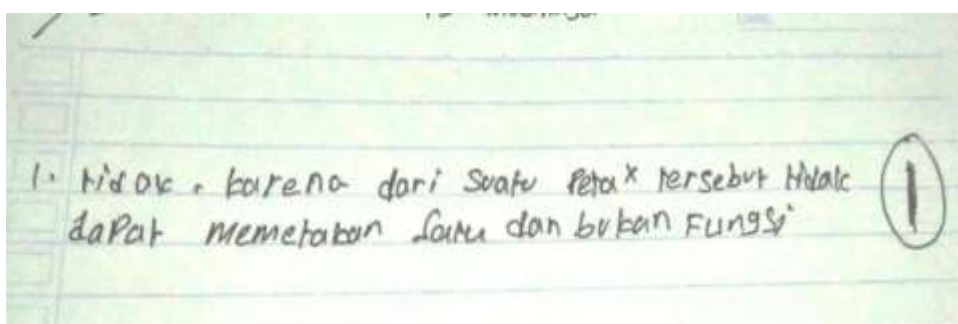 1. tidak, karena dari suatu Peta x tersebut tidak
dapat memetakan satu dan bukan Fungsi
1